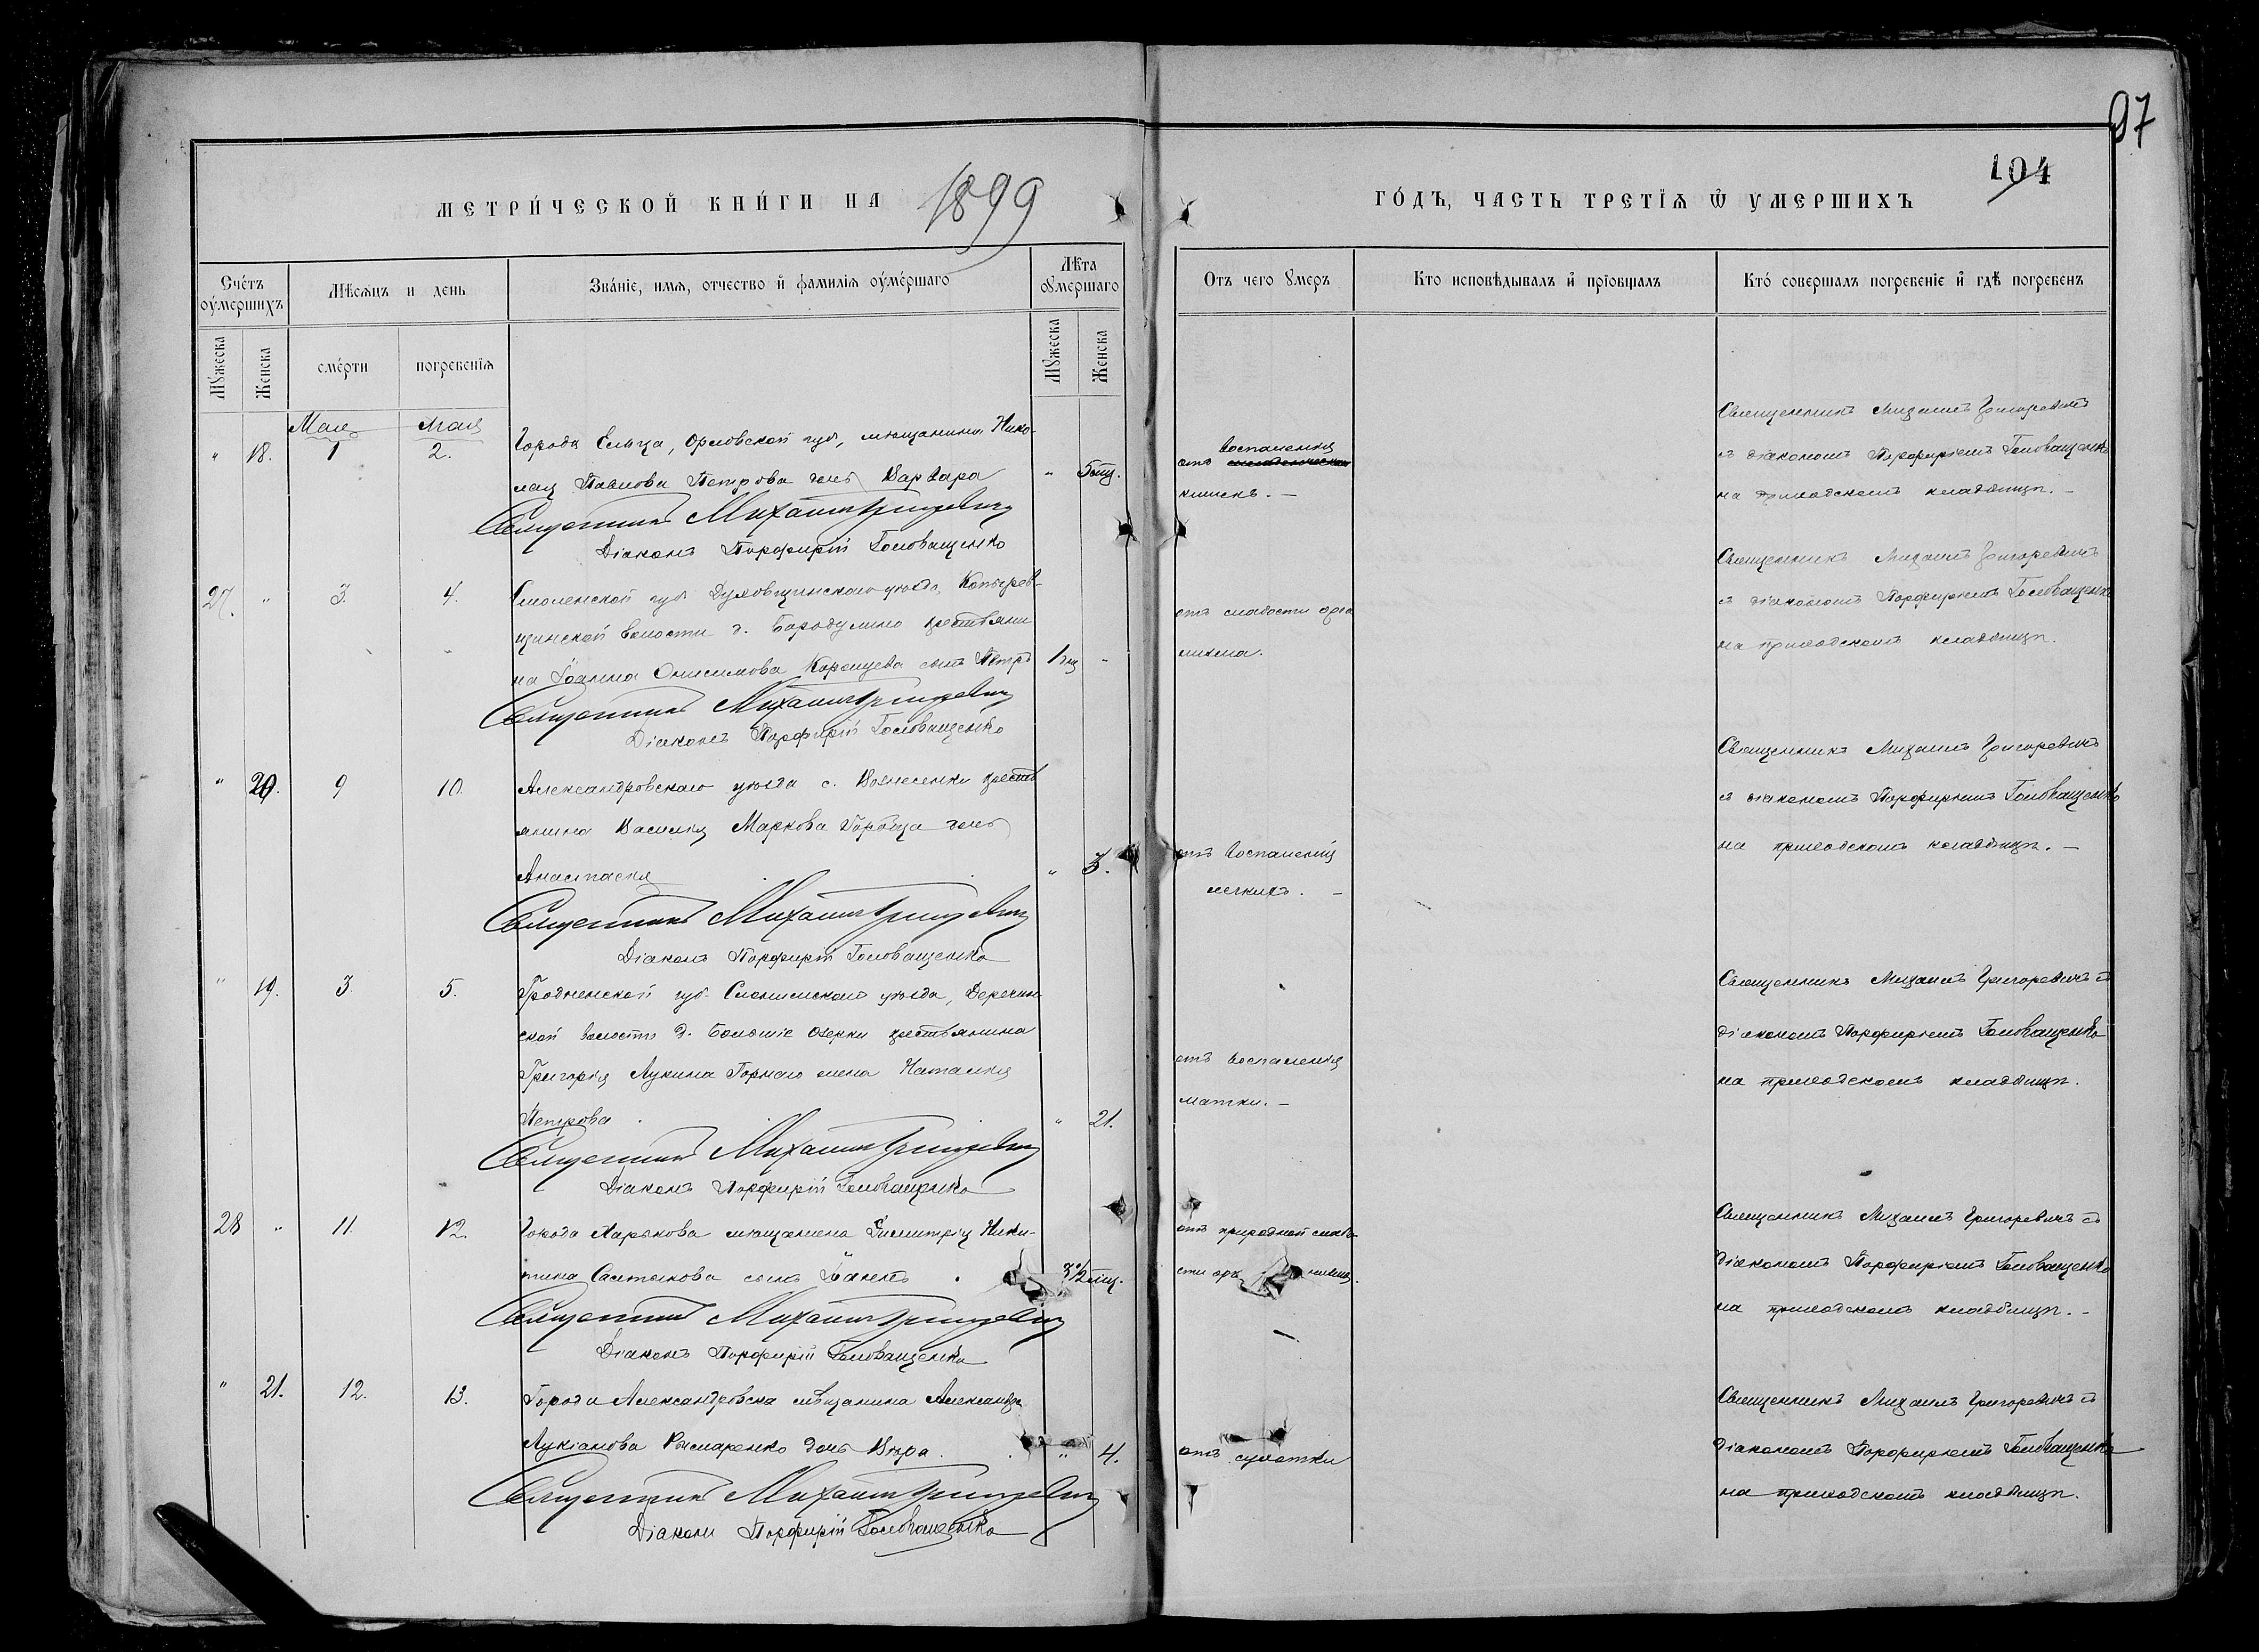 97
104
МЕТРИ́ЧЕСКОЙ КНИ́ГИ НА 1899
ГО́ДЪ, ЧАСТЬ ТРЕТІѦ Ѿ УМЕРШИХЪ
Сче́тъ оу҆ме́ршихъ
Мѣсѧцъ и день
Зва́ніе, имѧ, отчество и҆ фамилїѧ оу҆ме́ршаго
Лѣта ᲂумершаго
Отъ чего ᲂумеръ
Кто исповѣдывалъ и҆ прїобщалъ
Кто́ совершалъ погребенїе и҆ гдѣ погребенъ
Мꙋжеска
Женска
сме́рти
погребенїѧ
Мꙋжеска
Женска
Мая
Мая
" 18. 1 2.
Города Ельца, Орловской губ., мѣщанина Нико-
лая Павлова Петрова дочь Варвара " 5 мц.
Священникъ Михаилъ Григоревичъ
Діаконъ Порфирій Головащенко
отъ воспаленія
кишекъ. —
Священникъ Михаилъ Григоревичъ
съ діакономъ Порфиріемъ Головащенко
на приходскомъ кладбищѣ. —
27. " 3. 4.
Смоленской губ. Духовщинскаго уѣзда,
щинской волости д. Бородулино крестьяни
на Іоанна Онисимова сынъ Петръ 1 мц "
Священникъ Михаилъ Григоревичъ
Діаконъ Порфирій Головащенко
отъ слабости орга
низма.
Священникъ Михаилъ Григоревичъ
съ діакономъ Порфиріемъ Головащенко
на приходскомъ кладбищѣ.
" 20. 9 10.
Александровскаго уѣзда с. Вознесенки кресть
янина Василія Маркова Горбаца дочь
Анастасія " 3.
Священникъ Михаилъ Григоревичъ
Діаконъ Порфирій Головащенко
отъ воспаленія
легкихъ. —
Священникъ Михаилъ Григоревичъ
съ діакономъ Порфиріемъ Головащенко
на приходскомъ кладбищѣ. —
" 19. 3. 5.
Гродненской губ. Слонимскаго уѣзда, Деречин-
ской волости д. Большіе Озерки крестьянина
Григорія Лукина Горнаго жена Наталія
Петрова " 21.
Священникъ Михаилъ Григоревичъ
Діаконъ Порфирій Головащенко
отъ воспаленія
матки. —
Священникъ Михаилъ Григоревичъ съ
діакономъ Порфиріемъ Головащенко
на приходскомъ кладбищѣ.
28 " 11. 12.
Города Харькова мѣщанина Димитрія Ники-
тина Салтыкова сынъ Іоаннъ 3½ мц.
Священникъ Михаилъ Григоревичъ
Діаконъ Порфирій Головащенко
отъ природной слабо-
сти
Священникъ Михаилъ Григоревичъ съ
діакономъ Порфиріемъ Головащенко
на приходскомъ кладбищѣ. —
" 21. 12. 13.
Города Александровска мѣщанина Александра
Лукіанова Рымаренко дочь Вѣра. " 4.
Священникъ Михаилъ Григоревичъ
Діаконъ Порфирій Головащенко
отъ сухотки
Священникъ Михаилъ Григоревичъ съ
діакономъ Порфиріемъ Головащенко
на приходскомъ кладбищѣ.